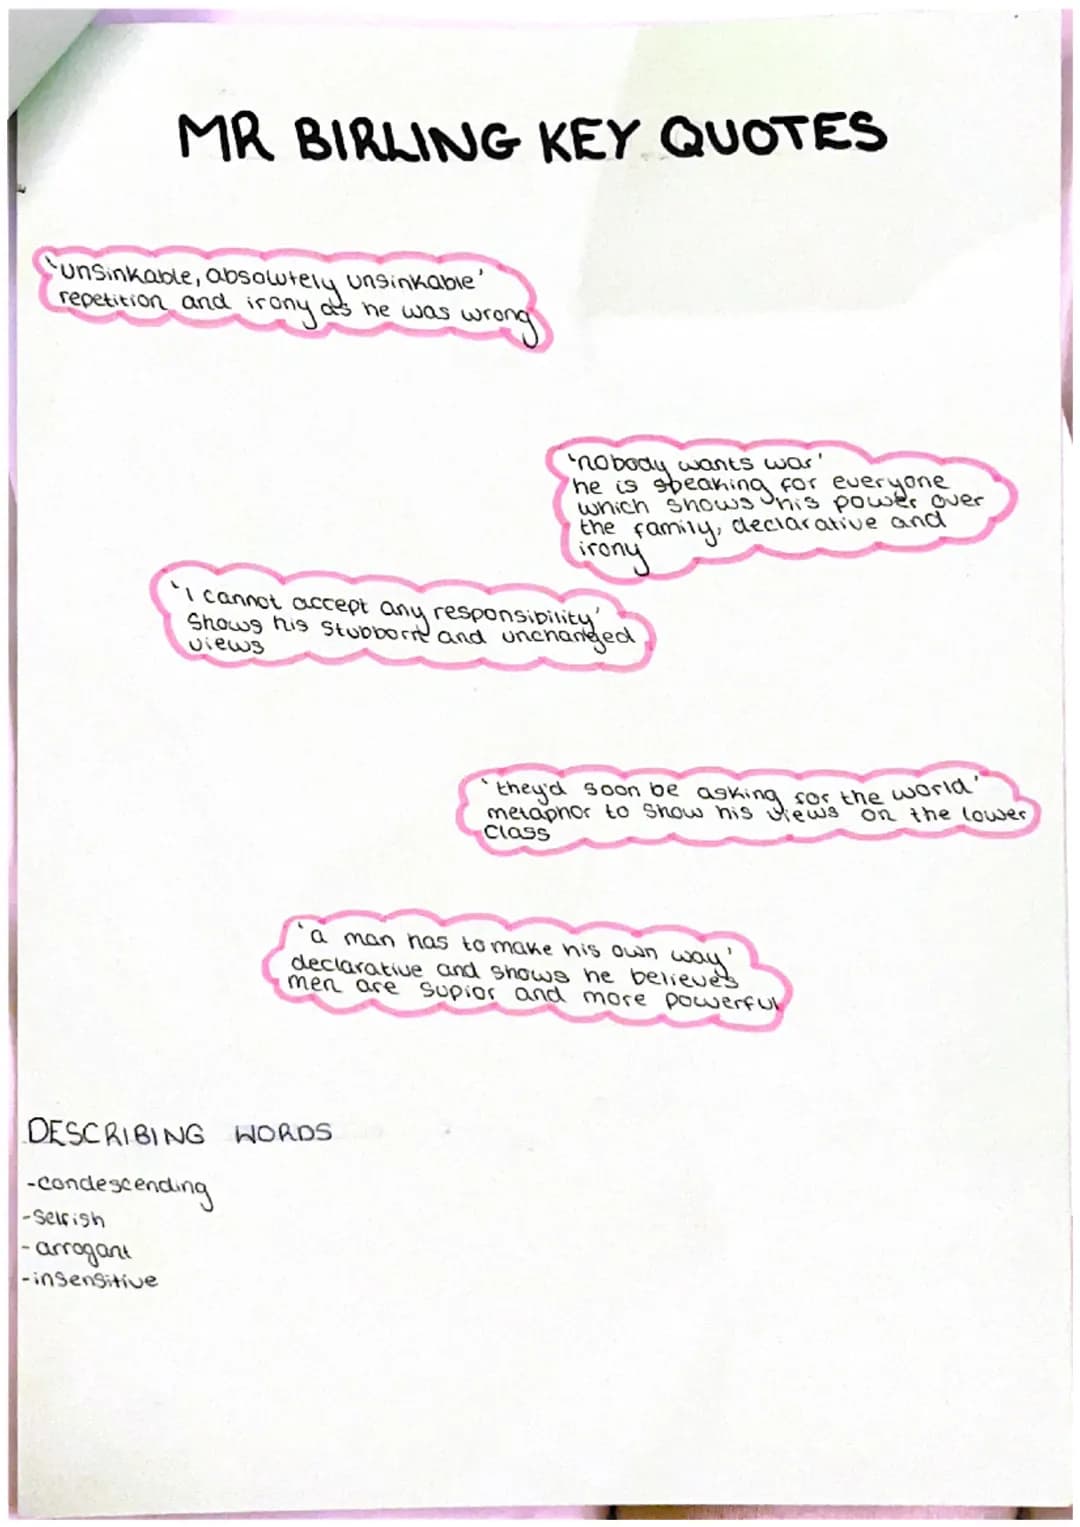 MR BIRLING KEY QUOTES
'unsinkable, absolutely unsinkable'
repetition and irony as he was wrong
'nobody wants war'
he is speaking for everyone
which shows his power over
the family, declarative and
irony
'I cannot accept any responsibility'
Shows his stubborn and unchanged
views
'they'd soon be asking for the world'
metaphor to show his views on the lower
class
'a man has to make his own way'
declarative and shows he believes
men are supior and more powerful
DESCRIBING WORDS
-condescending
-selfish
-arrogant
-insensitive